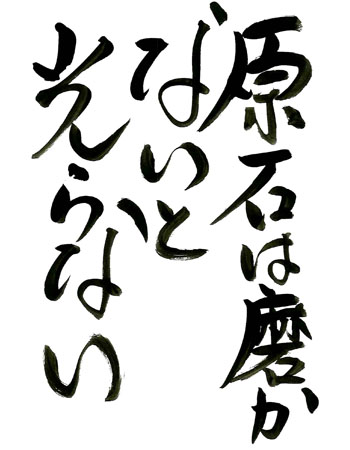 原石は磨か
ないと
光らない